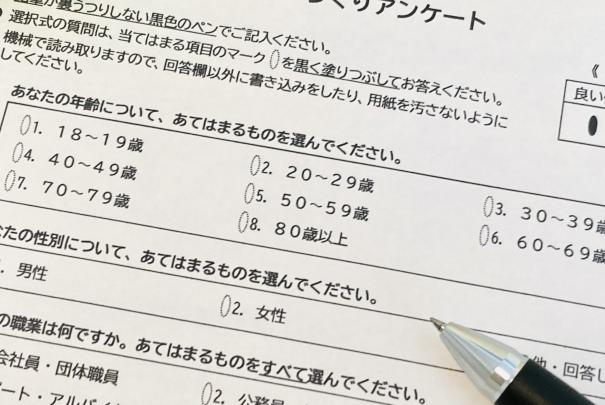 くりアンケート
が裏うつりしない黒色のペンでご記入ください。
選択式の質問は、当てはまる項目のマークを黒く塗りつぶしてお答えください。
機械で読み取りますので、回答欄以外に書き込みをしたり、用紙を汚さないように
してください。
《
良い
あなたの年齢について、あてはまるものを選んでください。
1. 18～19歳
2. 20～29歳
3. 30～39歳
4. 40～49歳
5. 50～59歳
6. 60～69歳
7. 70～79歳
8. 80歳以上
たの性別について、あてはまるものを選んでください。
. 男性
2. 女性
他・回答し
の職業は何ですか。あてはまるものをすべて選んでください。
会社員・団体職員
2. 公務員
ート・アルバイ